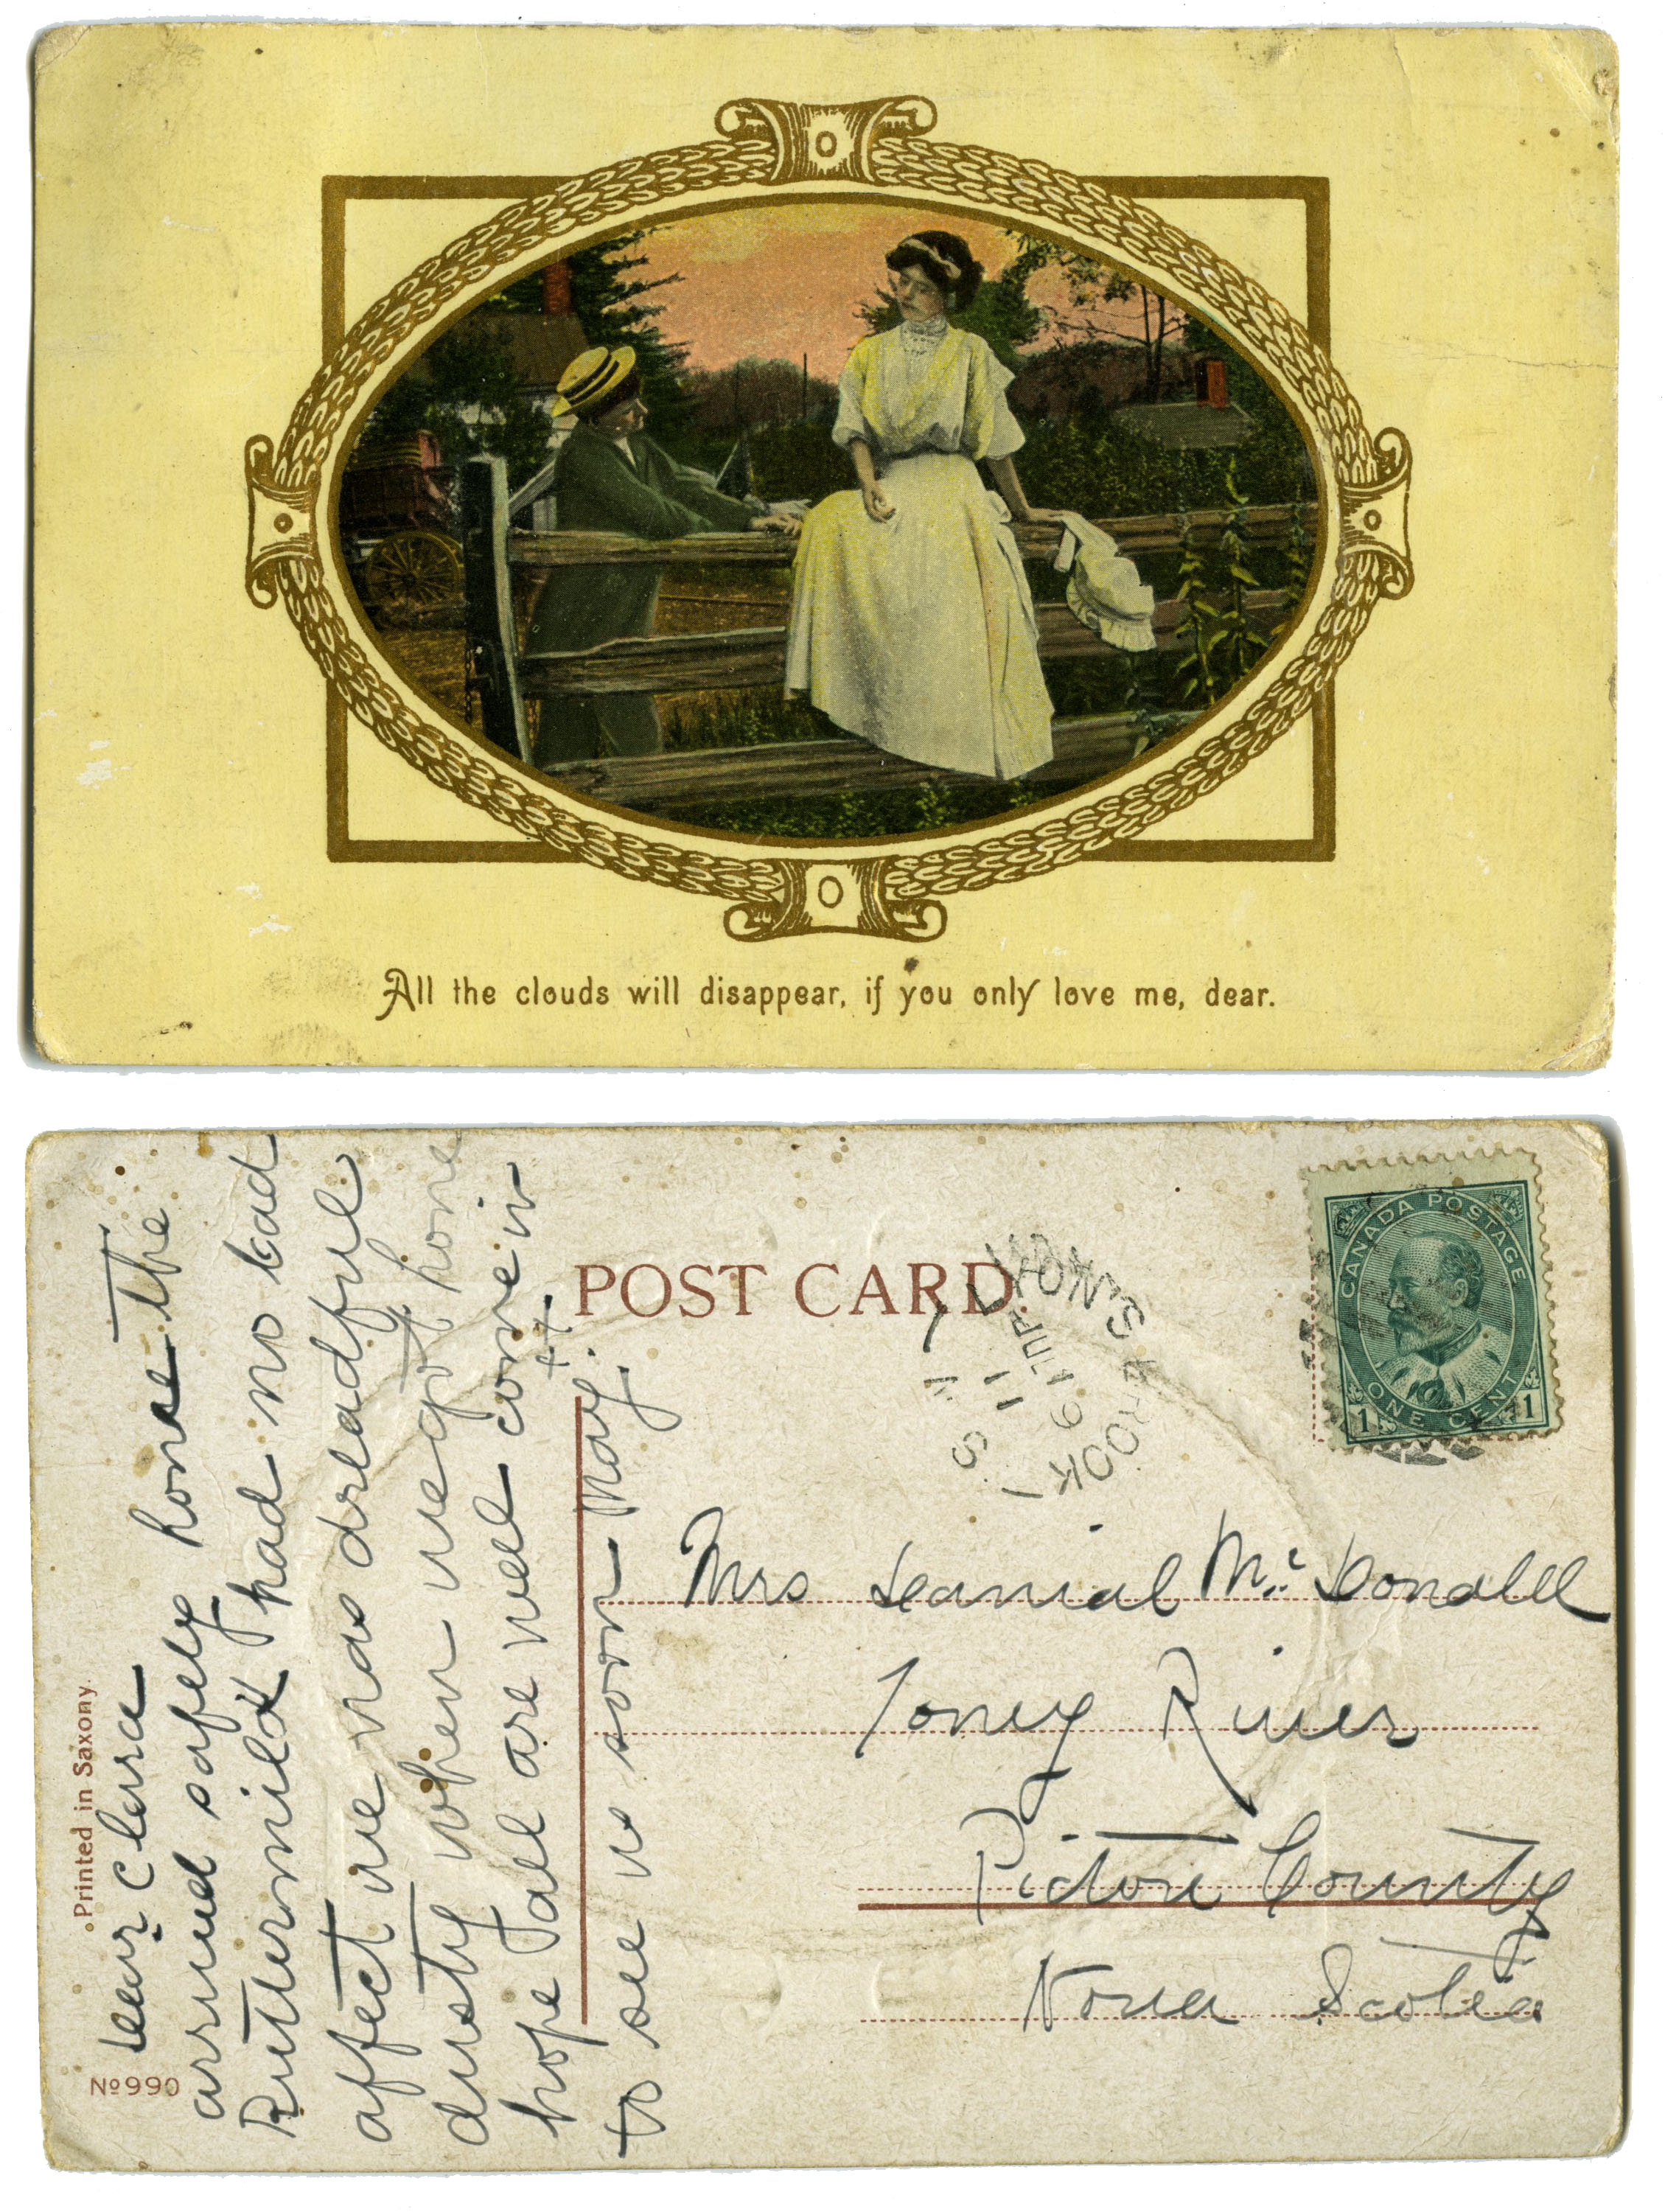 All the clouds will disappear, if you only love me, dear.
POST CARD.
CANADA POSTAGE
ONE CENT
1 1
Printed in Saxony.
No 990
Dear Clara
arrived safely home The
Buttermilk had no bad
affect we was dreadful
dusty when we got home
hope all are well come in
to see us soon May.
Mrs Danial Mc Donald
Toney River
Pictou County
Nova Scotia